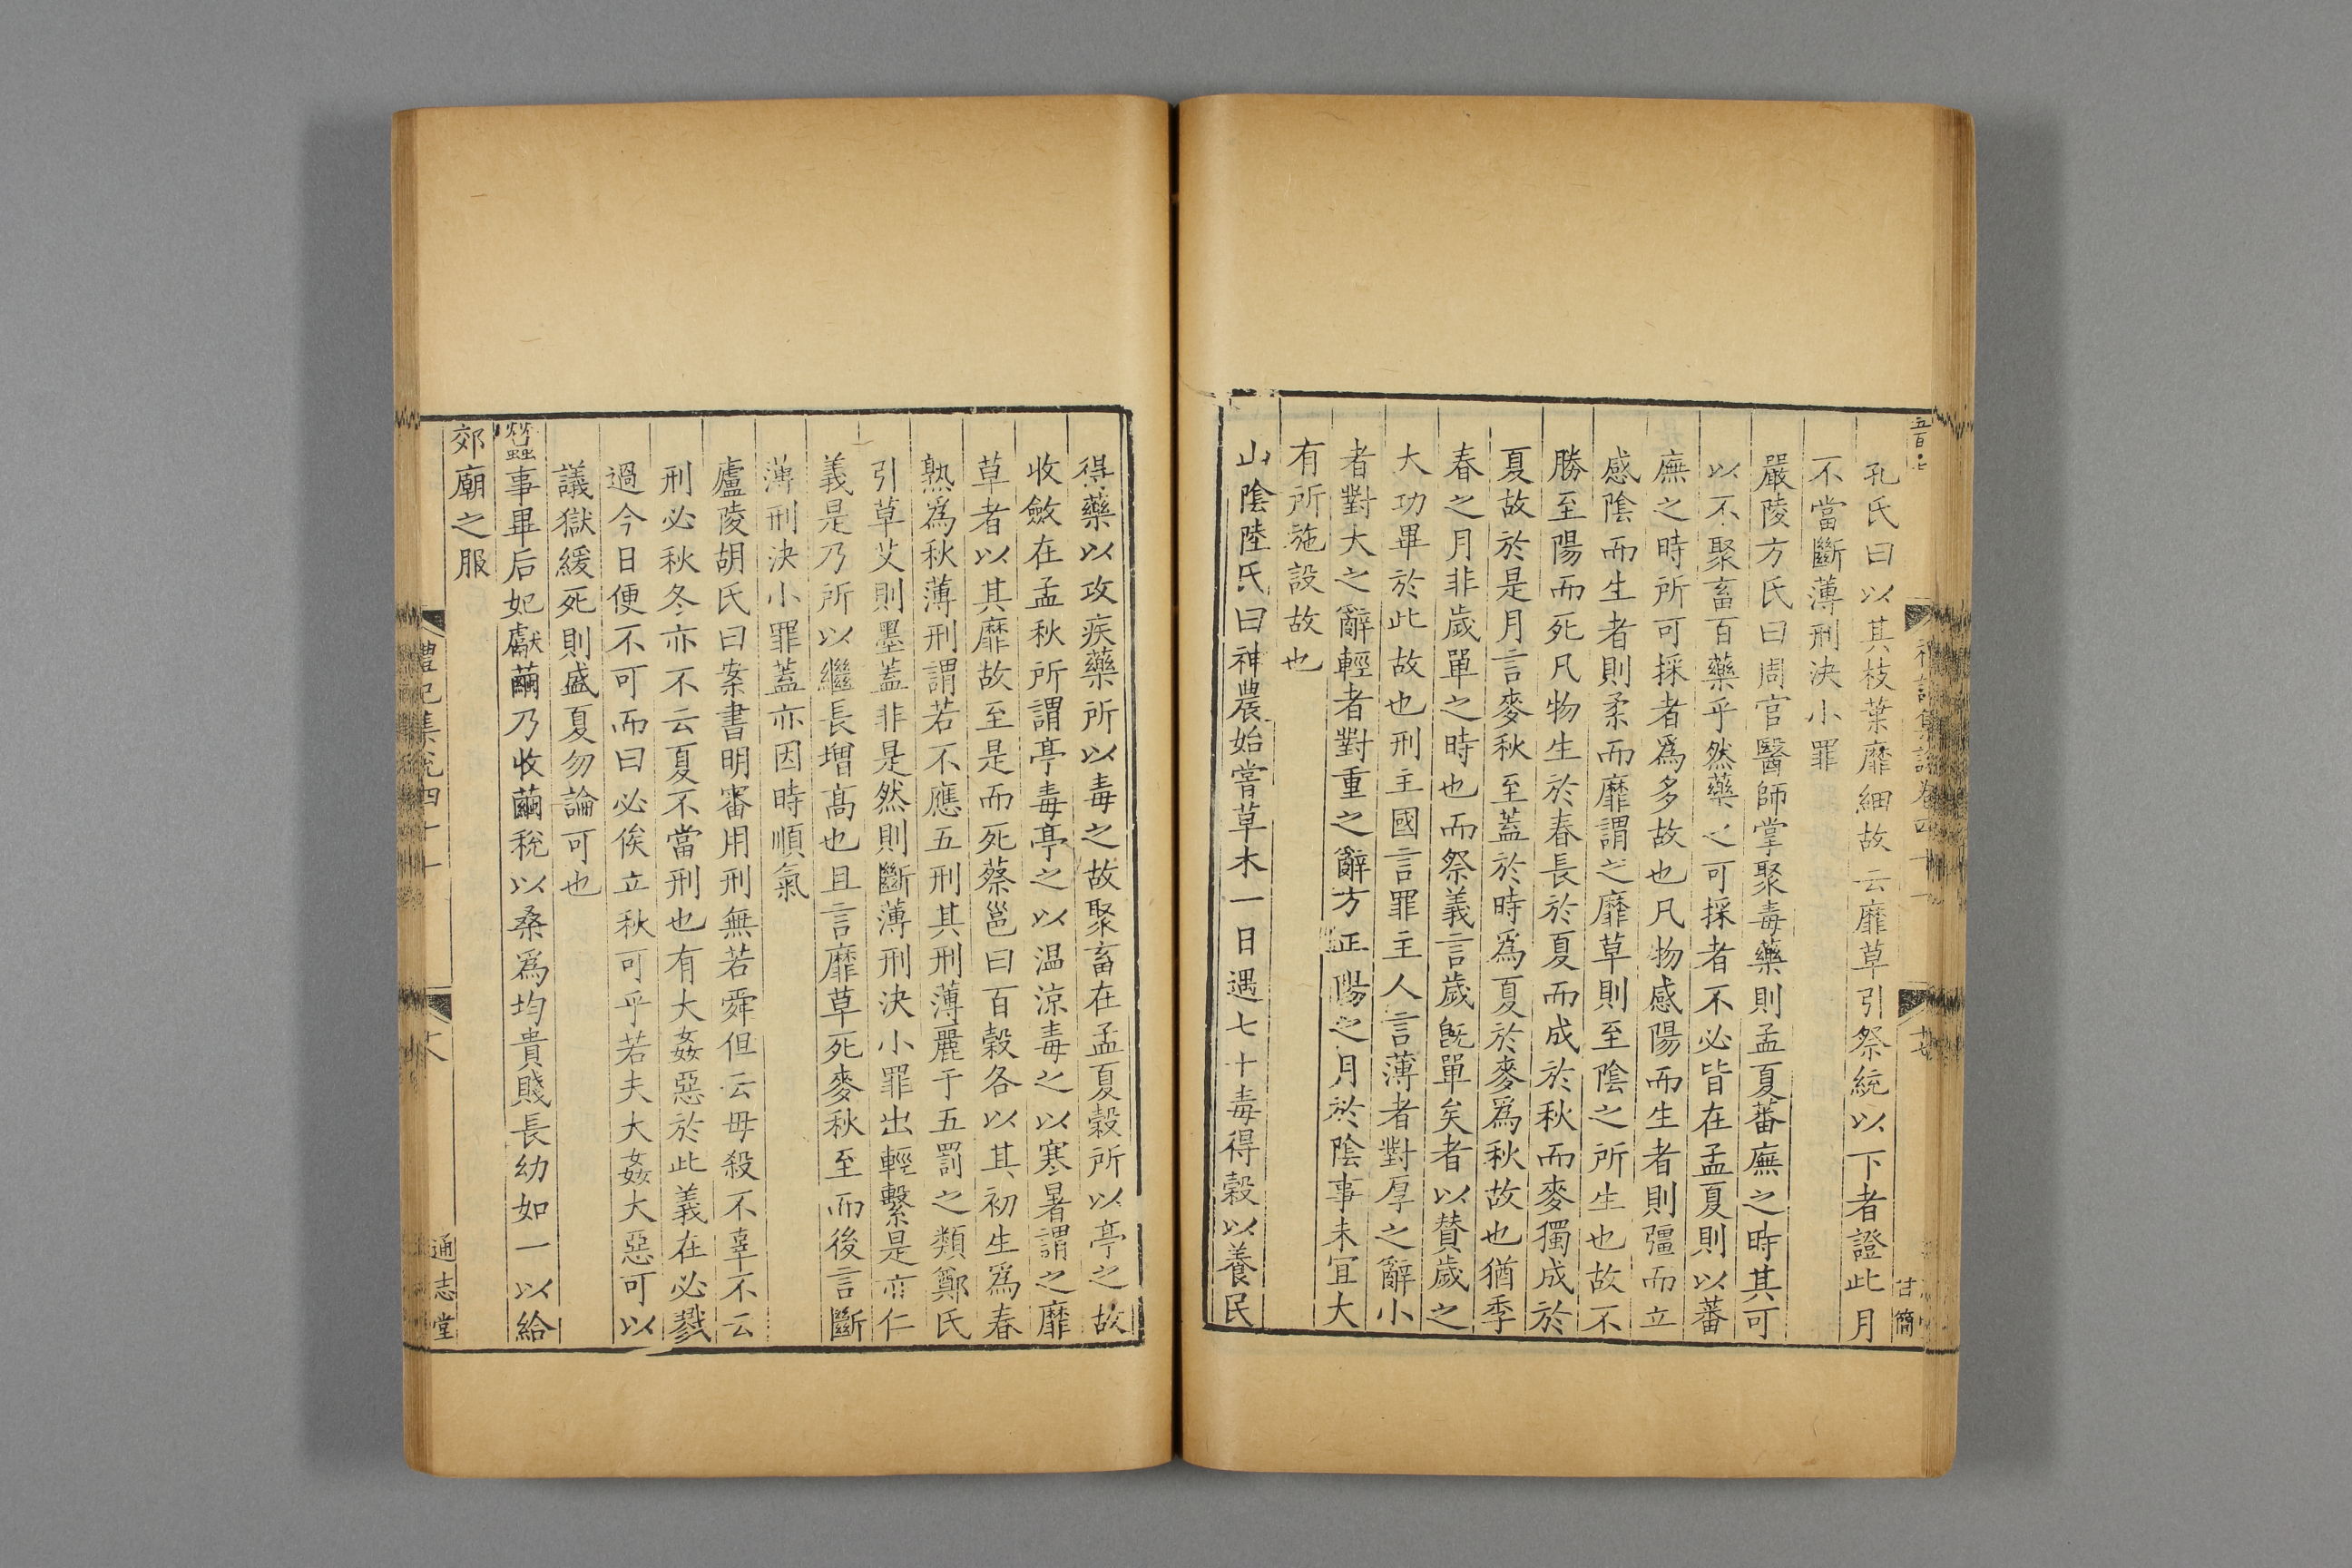 孔氏曰以其枝葉靡細故云靡草引祭統以下者證此月
不當斷薄刑決小罪
嚴陵方氏曰周官醫師掌聚毒藥則孟夏蕃廡之時其可
以不聚畜百藥乎然藥之可採者不必皆在孟夏則以蕃
廡之時所可採者爲多故也凡物感陽而生者則彊而立
感陰而生者則柔而靡謂之靡草則至陰之所生也故不
勝至陽而死凡物生於春長於夏而成於秋而麥獨成於
夏故於是月言麥秋至蓋於時爲夏於麥爲秋故也猶季
春之月非歲單之時也而祭義言歲既單矣者以賛歲之
大功畢於此故也刑主國言罪主人言薄者對厚之辭小
者對大之辭輕者對重之辭方正陽之月於陰事未宜大
有所施設故也
山陰陸氏曰神農始嘗草木一日遇七十毒得穀以養民
得藥以攻疾藥所以毒之故聚畜在孟夏穀所以亭之故
收斂在孟秋所謂亭毒亭之以温涼毒之以寒暑謂之靡
草者以其靡故至是而死蔡邕曰百穀各以其初生爲春
熟爲秋薄刑謂若不應五刑其刑薄麗于五罰之類鄭氏
引草艾則墨蓋非是然則斷薄刑決小罪出輕繫是亦仁
義是乃所以繼長增髙也且言靡草死麥秋至而後言斷
薄刑決小罪蓋亦因時順氣
廬陵胡氏曰案書明審用刑無若舜但云毋殺不辜不云
刑必秋冬亦不云夏不當刑也有大姦惡於此義在必戮
過今日便不可而曰必俟立秋可乎若夫大姦大惡可以
議獄緩死則盛夏勿論可也
蠶事畢后妃獻繭乃收繭稅以桑爲均貴賤長幼如一以給
郊廟之服
通志堂